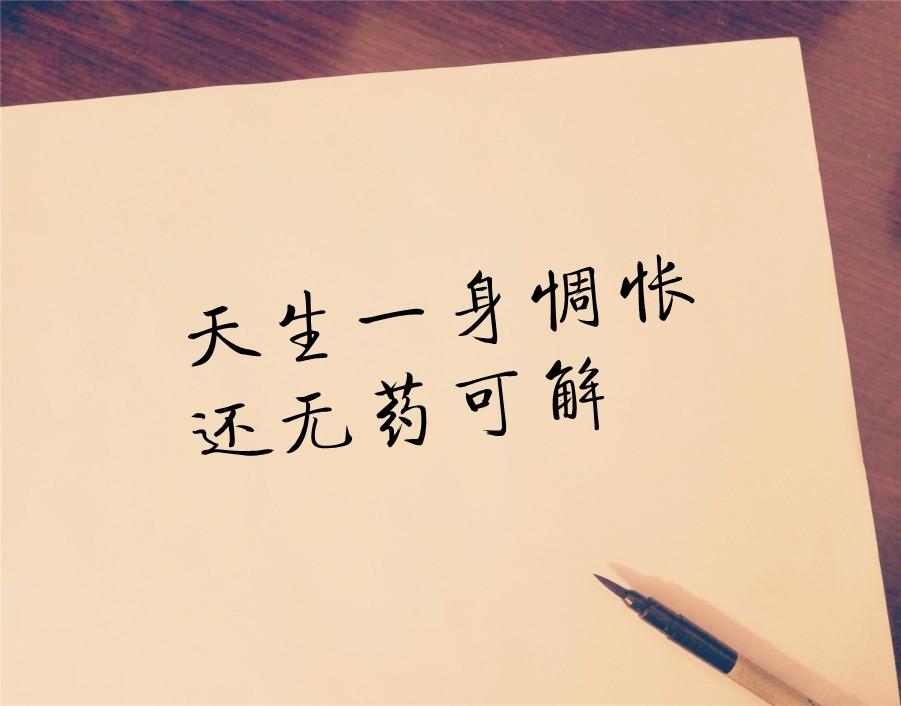 天生一身惆怅
还无药可解